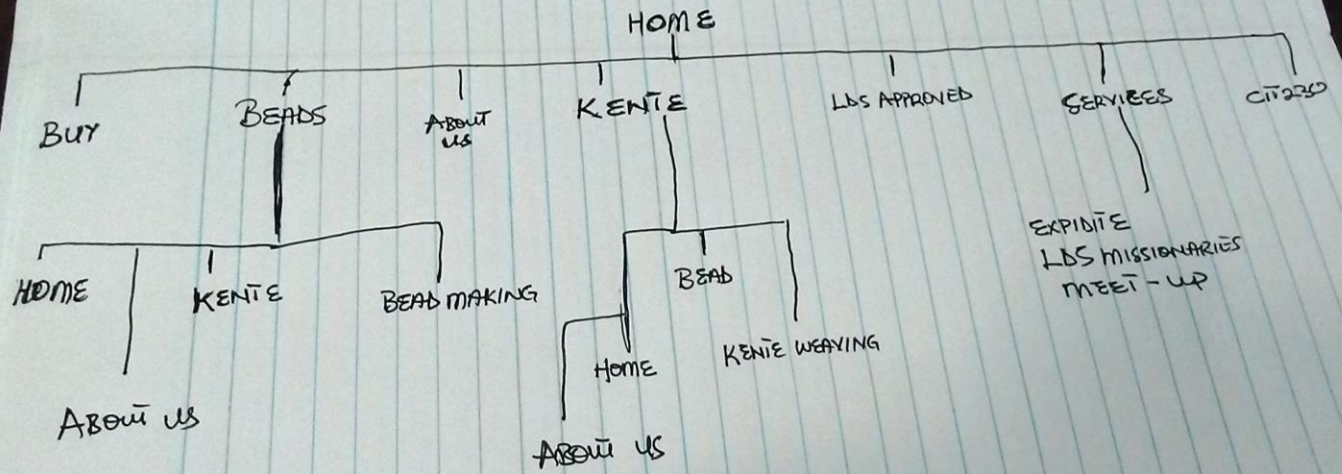 HOME
BUY
BEADS
ABOUT
US
KENTE
LDS APPROVED
SERVICES
CIT230
HOME
ABOUT US
KENTE
BEAD MAKING
HOME
ABOUT US
BEAD
KENTE WEAVING
EXPIDITE
LDS MISSIONARIES
MEET-UP